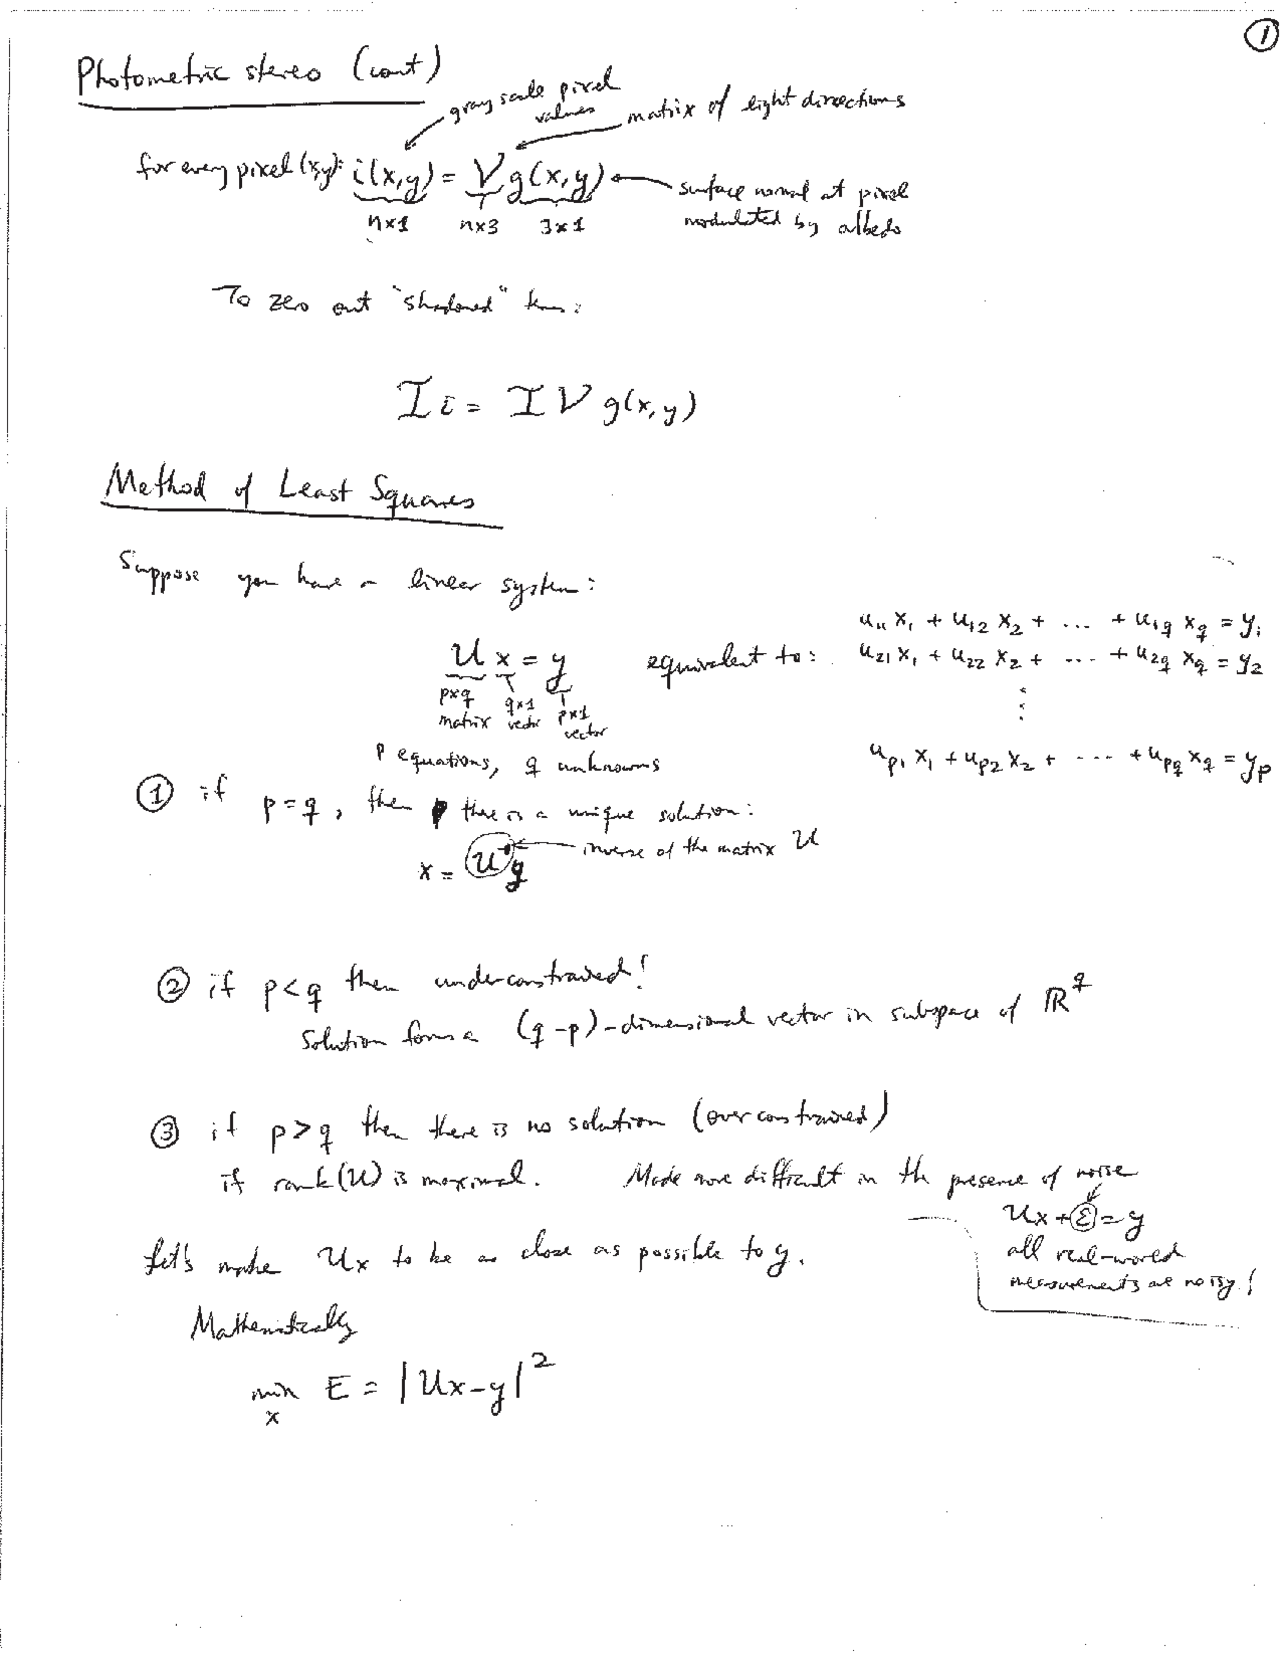 1
Photometric stereo (cont)
gray scale pixel
values
matrix of light directions
for every pixel (x,y): i(x,y) = V g(x,y)
surface normal at pixel
modulated by albedo
n×1 n×3 3×1
To zero out "shadowed" terms:
I i = I V g(x,y)
Method of Least Squares
Suppose you have a linear system:
U x = y equivalent to:
p×q q×1 p×1
matrix vector vector
u11 x1 + u12 x2 + ... + u1q xq = y1
u21 x1 + u22 x2 + ... + u2q xq = y2
⋮
up1 x1 + up2 x2 + ... + upq xq = yp
p equations, q unknowns
① if p=q, then there is a unique solution:
x = U⁻¹y inverse of the matrix U
② if p<q then underconstrained!
Solution forms a (q-p)-dimensional vector in subspace of ℝ^q
③ if p>q then there is no solution (overconstrained)
if rank(U) is maximal. Made more difficult in the presence of noise
Ux + ε = y
all real-world
measurements are noisy!
Let's make Ux to be as close as possible to y.
Mathematically
min E = |Ux-y|²
x